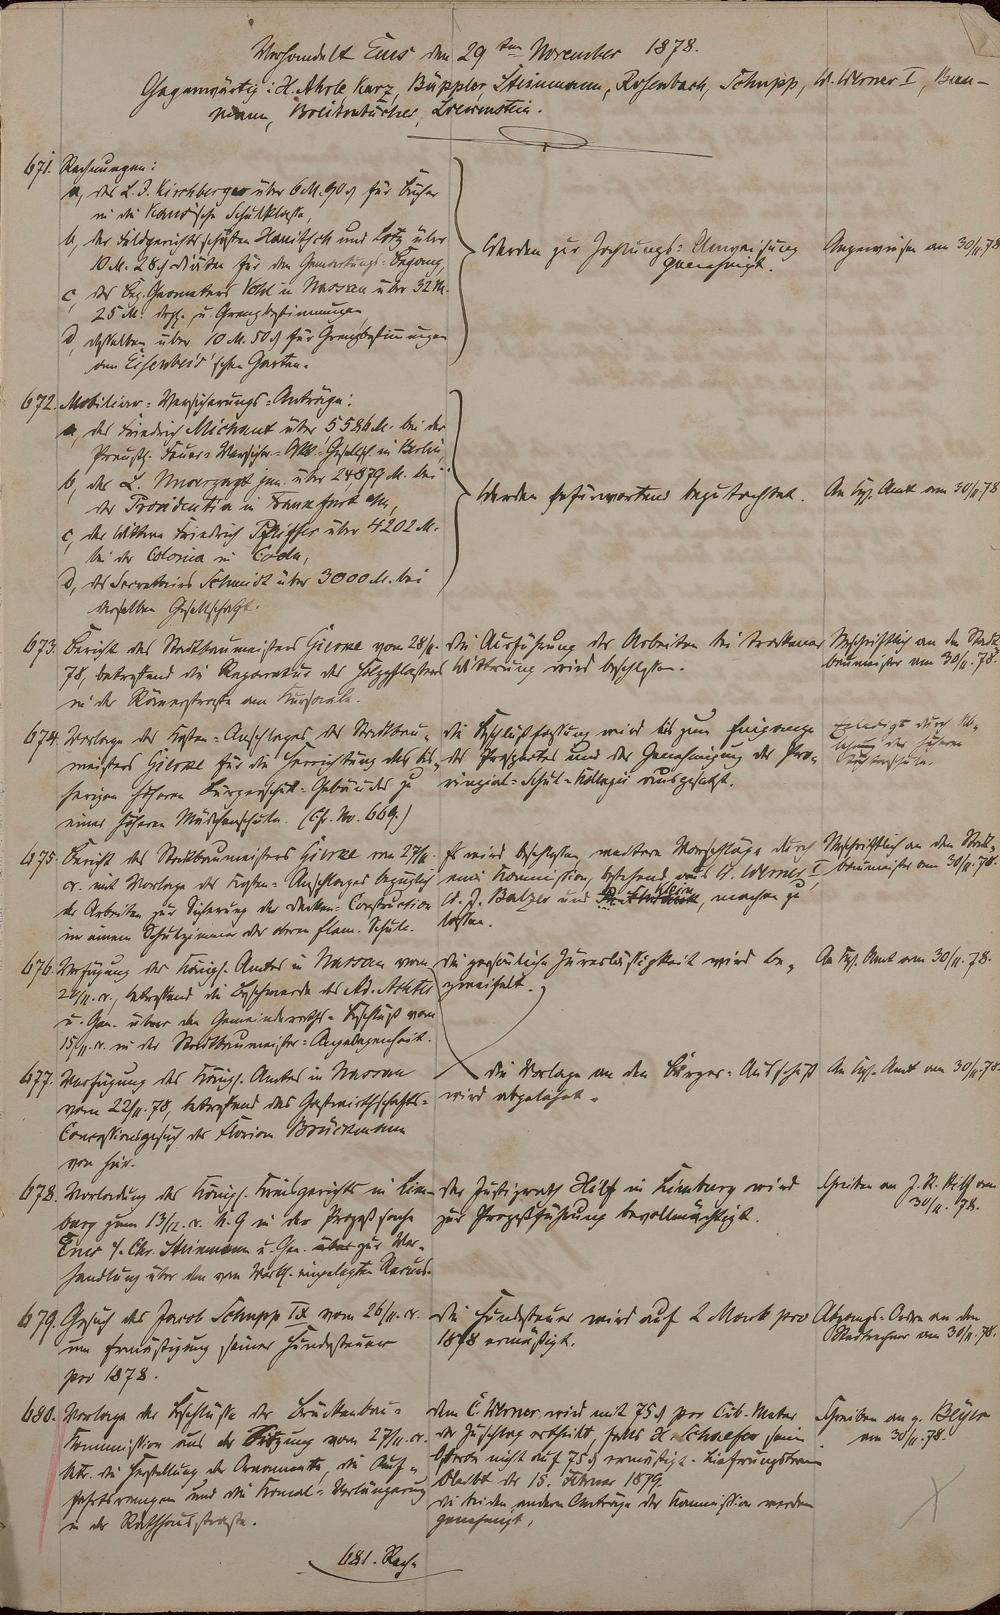 Verhandelt Ems den 29ten November 1878.
Gegenwärtig: H. Ahrle Karz, Büppler, Steinmann, Rosenbach, Schupp, W. Werner I, Bau-
mann, Loewenstein.
671. Rechnungen:
a, des L. J. Kirchberger über 6 M. 90 ₰ für Bücher
in die Schulklasse,
b, der Feldgerichtsschöffen Hanitsch und Lotz über
10 M. 28 ₰ Diäten für den Gemarkungs-Begang,
c, des Geometers Vohl in Nassau über 32 M.
25 M. u. Grenzbestimmungen
d, desselben über 10 M. 50 ₰ für Grenzbestimmungen
vom Eisenbeis'schen Garten.
Werden zur Zahlungs-Anweisung
genehmigt.
Angewiesen am 30/11.78
672. Mobiliar-Versicherungs-Anträge:
a, des Friedrich Michaut über 5586 M. bei der
Preuß. Feuer-Versicher.-Akt.-Gesellsch. in Berlin,
b, des L. Unverzagt jun. über 24879 M. bei
der Providentia in Frankfurt a/M,
c, der Wittwe Friedrich Pfeiffer über 4202 M.
bei der Colonia in Cöln,
d, des Secretairs Schmidt über 3000 M. bei
derselben Gesellschaft.
Werden befürwortend begutachtet.
An Kgl. Amt am 30/11.78
673. Bericht des Stadtbaumeisters Gierke vom 28/11.
78, betreffend die Reparatur des Holzpflasters
in der Römerstrasse am Kursaale.
Die Ausführung der Arbeiten bei trockener
Witterung wird beschlossen.
Abschriftlich an den Stadt-
baumeister am 30/11.78.
674. Vorlage des Kosten-Anschlages des Stadtbau-
meisters Gierke für die Herrichtung des bis-
herigen höheren Bürgerschul-Gebäudes zu
einer höheren Mädchenschule. (Cfr. No. 669.)
Die Beschlußfassung wird bis zum Eingange
des Prospectes und der Genehmigung des Pro-
vinzial-Schul-Collegii ausgesetzt.
Erledigt durch
der höheren
675. Bericht des Stadtbaumeisters Gierke vom 27/11.
cr. mit Vorlage des Kosten-Anschlages bezüglich
der Arbeiten zur Sicherung der Decken-Construction
in einem Schulzimmer der oberen Elem. Schule.
Es wird beschlossen, weitere Vorschläge durch
eine Kommission, bestehend aus W. Werner I,
W. J. Balzer und Klein, machen zu
lassen.
Abschriftlich an den Stadt-
baumeister am 30/11.78.
676. Verfügung des Königl. Amtes in Nassau vom
cr., betreffend die Beschwerde des Ad.
u. Gen. über den Gemeinderaths-Beschluß vom
15/11. cr. in der Stadtbaumeister-Angelegenheit.
Die persönliche Zuverlässigkeit wird be-
zweifelt.
An Kgl. Amt am 30/11.78.
677. Verfügung des Königl. Amtes in Nassau
vom 22/11.78, betreffend das Gastwirthschafts-
Concessionsgesuch des Florian Brückmann
von hier.
Die Vorlage an den Bürger-Ausschuß
wird abgelehnt.
An Kgl. Amt am 30/11.78.
678. Vorladung des Königl. Kreisgerichts in Lim-
burg zum 13/12. cr. V. 9 in der Prozeßsache
Ems ./. Chr. Steinmann u. Gen. zur Ver-
handlung über den vom eingelegten Recurs.
Der Justizrath Hilf in Limburg wird
zur Prozeßführung bevollmächtigt.
Schreiben an J. R. Hilf am
30/11.78.
679. Gesuch des Jacob Schupp IX vom 26/11. cr.
um Ermäßigung seiner Hundesteuer
pro 1878.
Die Hundesteuer wird auf 2 Mark pro
1878 ermäßigt.
Abgangs-Ordre an den
Stadtrechner am 30/11.78.
680. Vorlage der Beschlüsse der Brückenbau-
Kommission aus der Sitzung vom 27/11. cr.
btr. die Herstellung der Ornamente, die Auf-
fahrtsrampen und die Kanal-Verlängerung
in der Rathhausstrasse.
Dem C. Werner wird mit 75 ₰ pro Cub. Meter
der Zuschlag ertheilt, falls H. Schaefer sein
nicht auf 75 ₰ ermäßigt. Lieferungstermin
bleibt der 15. Februar 1879.
Die beiden andern Anträge der Kommission werden
genehmigt.
Schreiben an p. Beyer
am 30/11.78.
681. Rech-